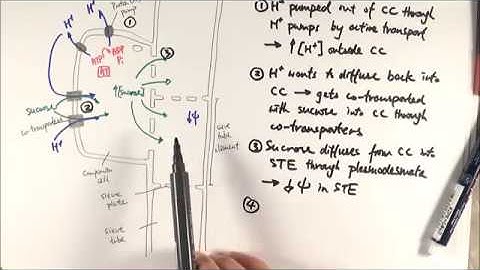 H⁺
H⁺
Proton
pump
①
ATP
ADP
Pi
AT
③
↑[sucrose]
Sucrose
②
co-transporter
H⁺
↓Ψ
sieve
tube
element
companion
cell
sieve
plate
sieve
tube
① H⁺ pumped out of CC through
H⁺ pumps by active transport
→ ↑[H⁺] outside CC
② H⁺ wants to diffuse back into
CC → gets co-transported
with sucrose into CC through
co-transporters
③ Sucrose diffuses from CC into
STE through plasmodesmata
→ ↓Ψ in STE
④